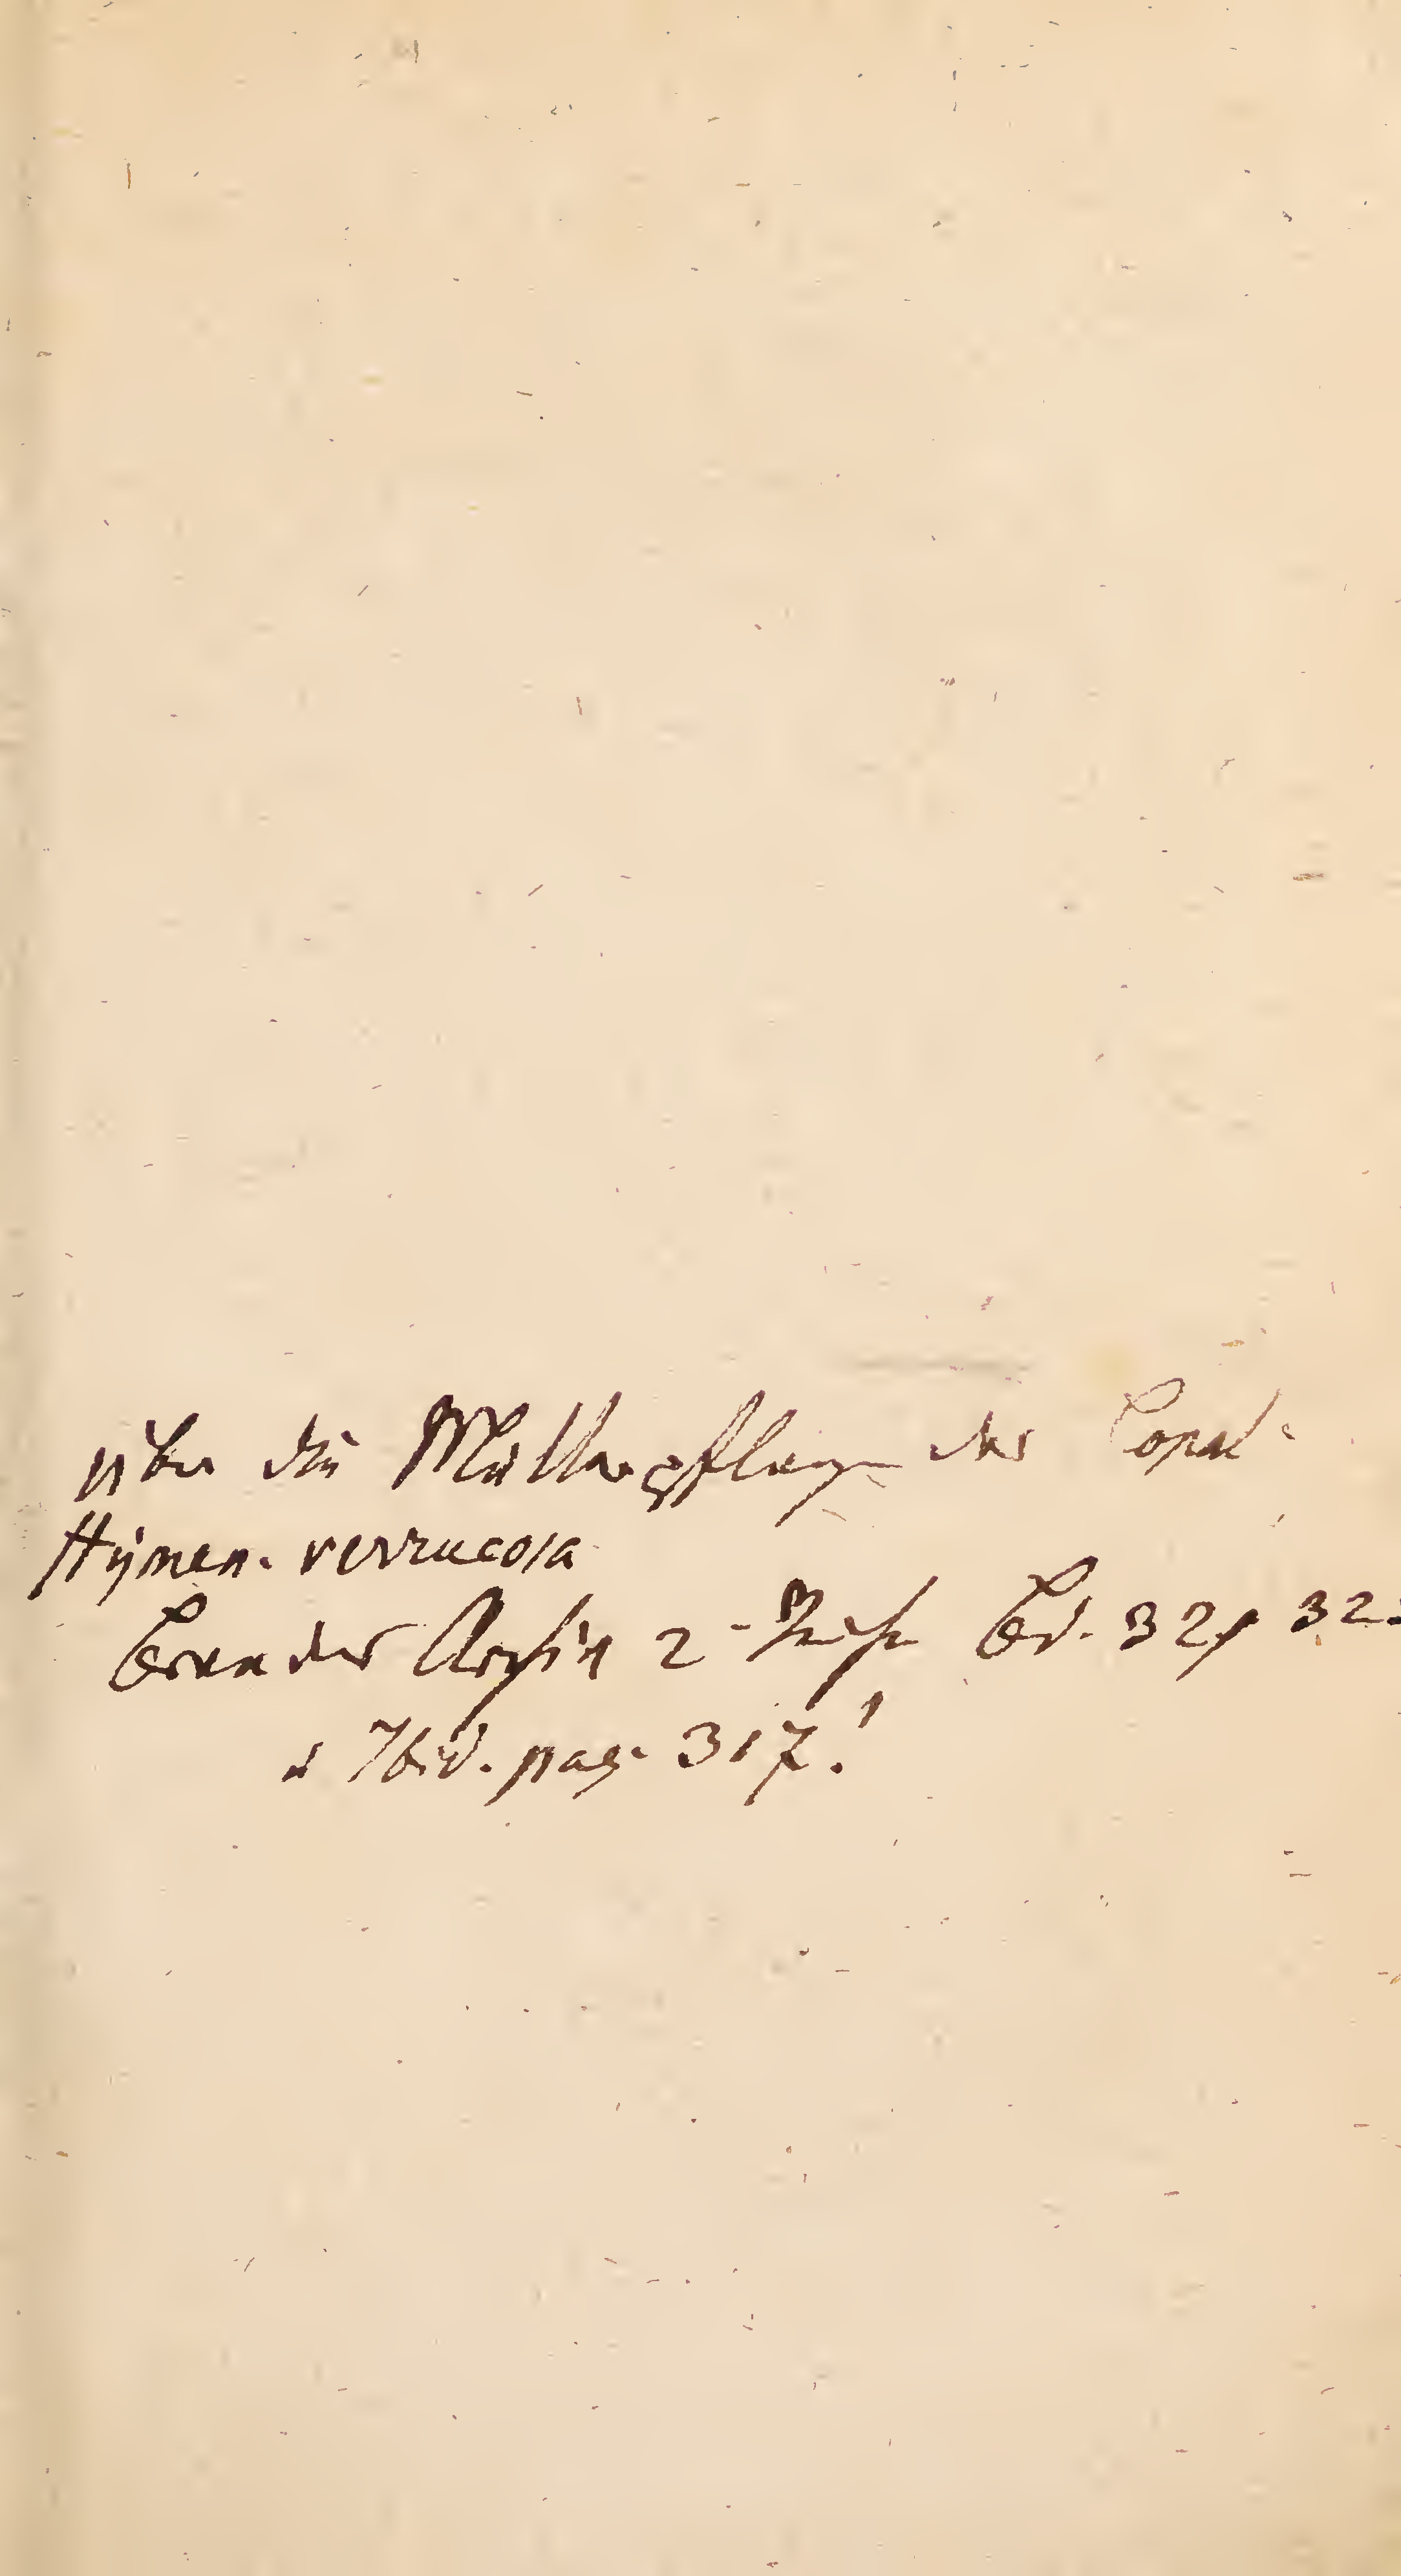 über die Mutterpflanze des Copal-
Hymen. verrucosa
Brandes Archiv 2 Reihe Bd. 32 p 32
u Ibid. pag. 317.!